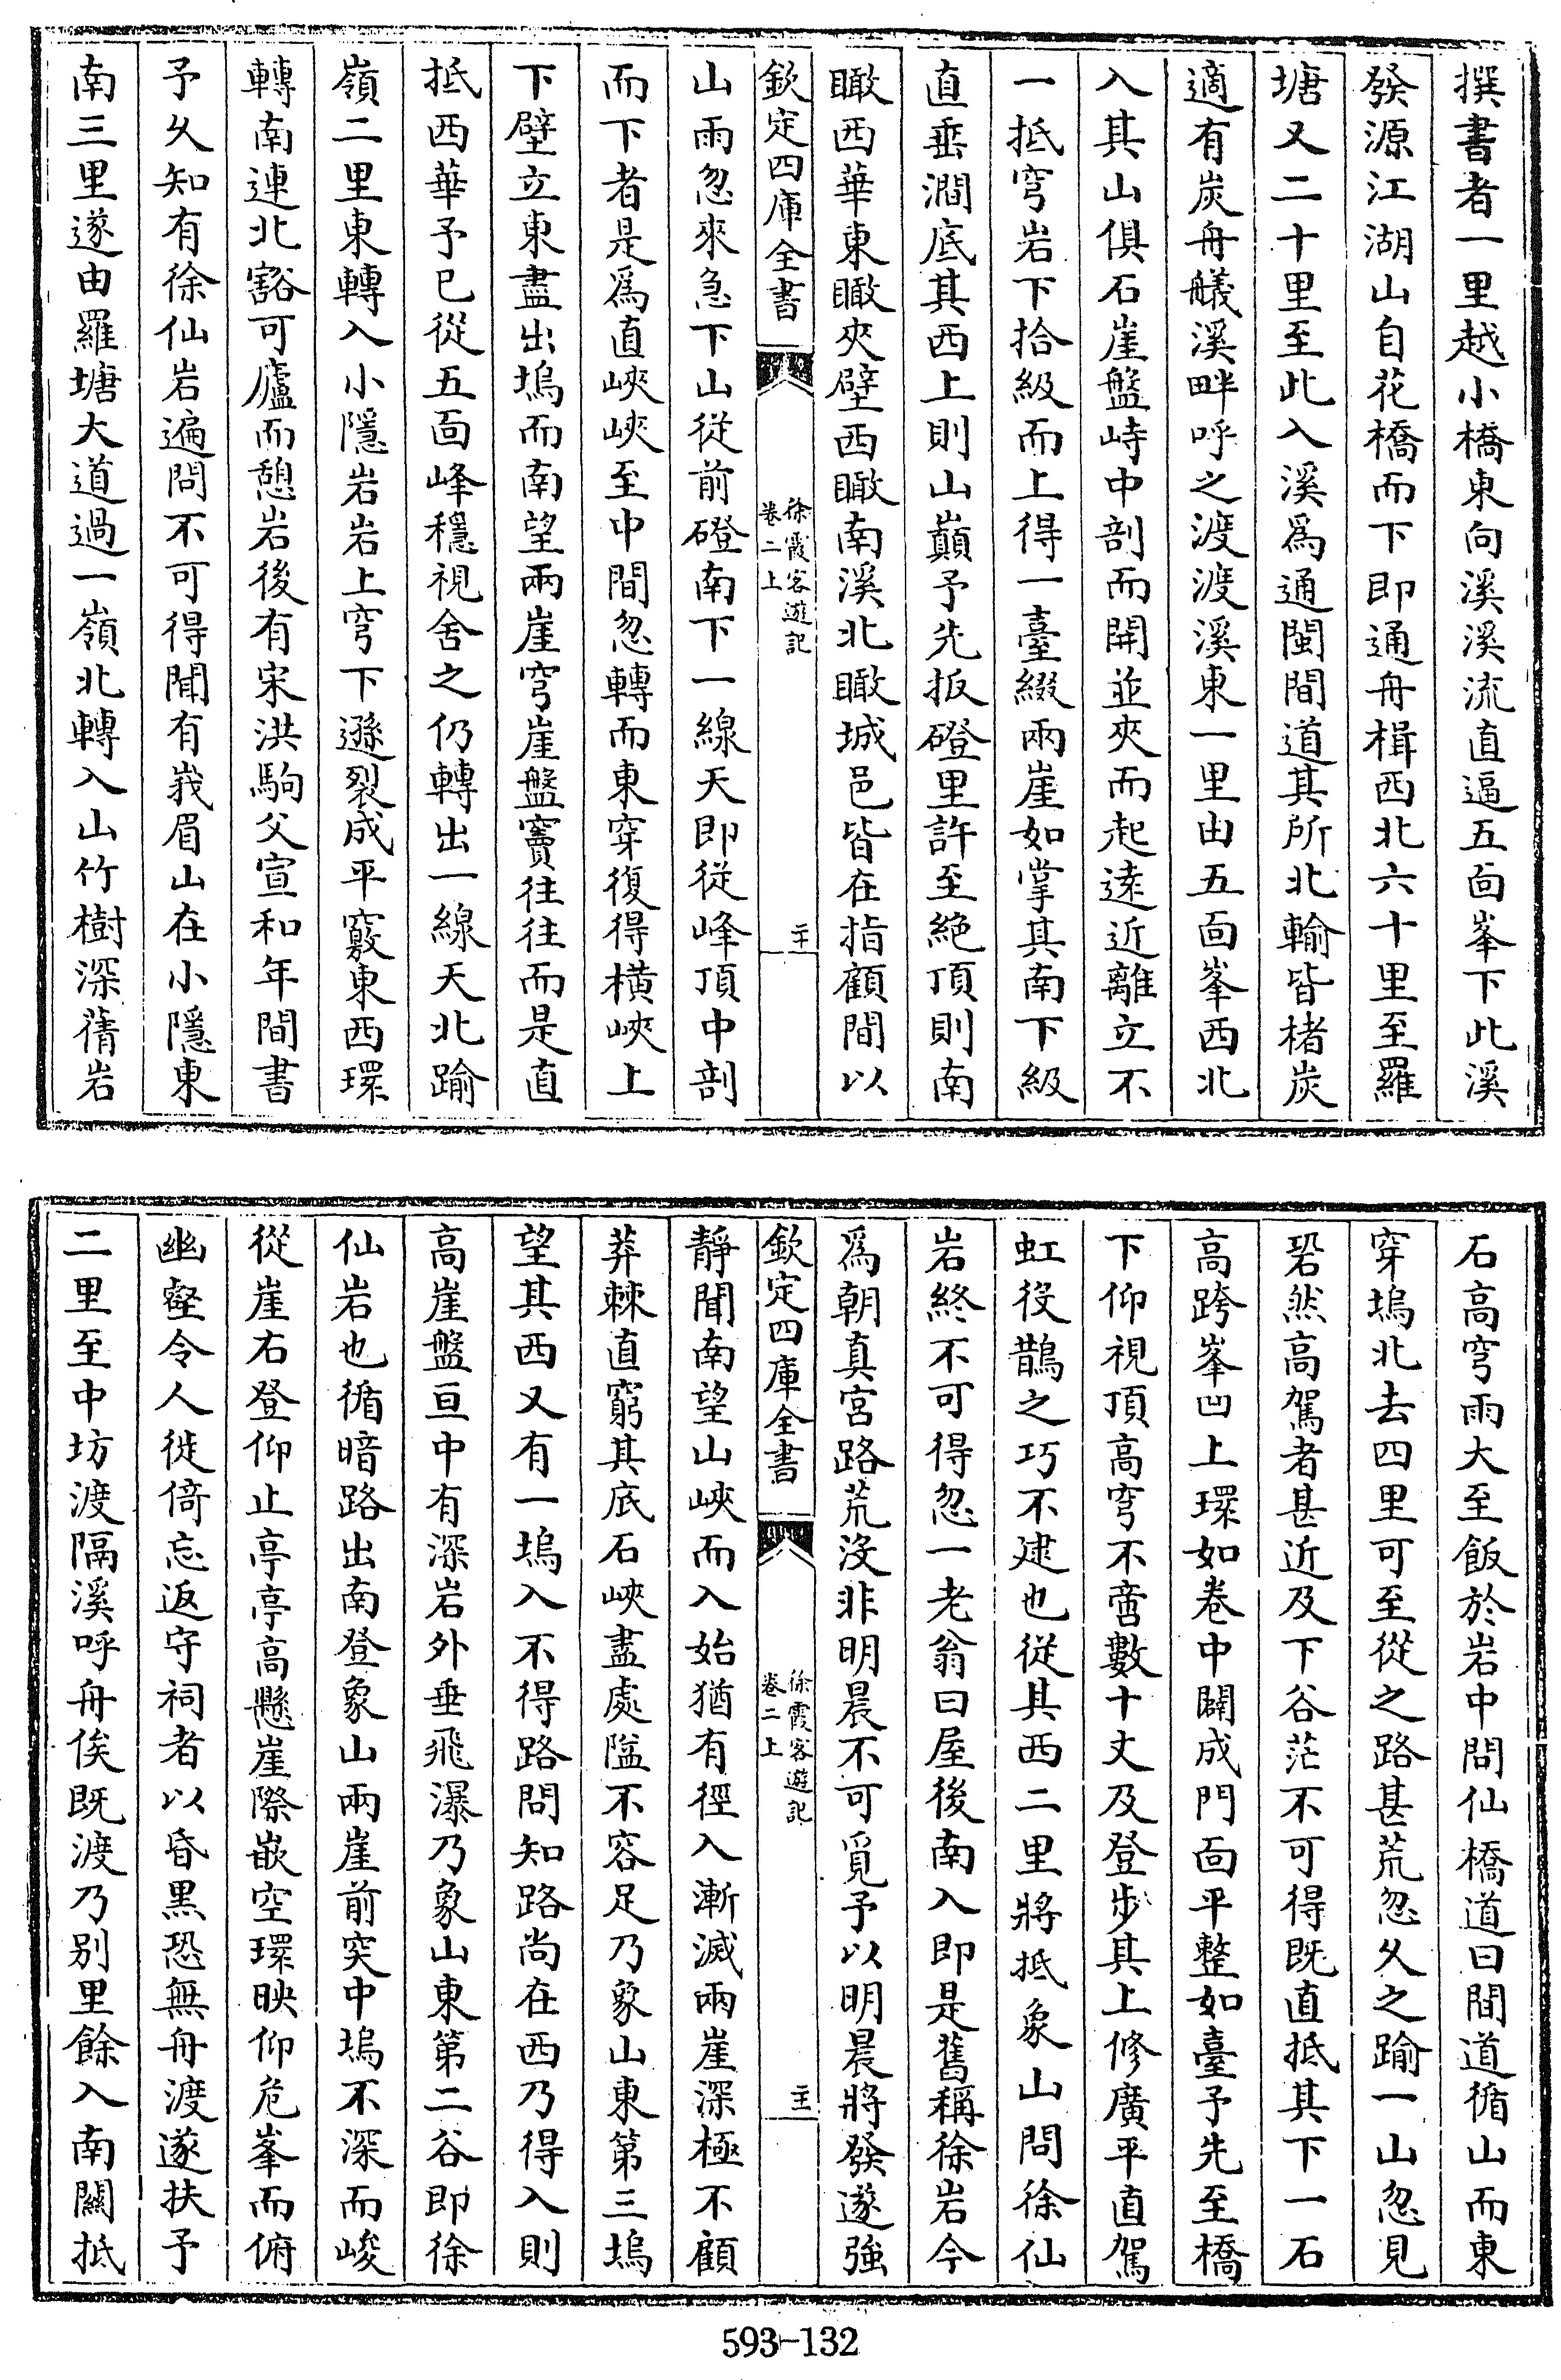 撰書者一里越小橋東向溪溪流直逼五面峯下此溪
發源江湖山自花橋而下即通舟楫西北六十里至羅
塘又二十里至此入溪爲通閩間道其所北輸皆楮炭
適有炭舟艤溪畔呼之渡渡溪東一里由五面峯西北
入其山俱石崖盤峙中剖而開並夾而起遠近離立不
一抵穹岩下拾級而上得一臺綴兩崖如掌其南下級
直垂澗底其西上則山巔予先扳磴里許至絶頂則南
瞰西華東瞰夾壁西瞰南溪北瞰城邑皆在指顧間以
欽定四庫全書
徐霞客遊記
卷二上
二十
山雨忽來急下山從前磴南下一線天即從峰頂中剖
而下者是爲直峽峽至中間忽轉而東穿復得横峽上
下壁立東盡出塢而南望兩崖穹崖盤竇往往而是直
抵西華予已從五面峰穩視舍之仍轉出一線天北踰
嶺二里東轉入小隱岩岩上穹下遜裂成平竅東西環
轉南連北豁可廬而憩岩後有宋洪駒父宣和年間書
予久知有徐仙岩遍問不可得聞有峩眉山在小隱東
南三里遂由羅塘大道過一嶺北轉入山竹樹深蒨岩
石高穹雨大至飯於岩中問仙橋道曰間道循山而東
穿塢北去四里可至從之路甚荒忽久之踰一山忽見
碧然高駕者甚近及下谷茫不可得既直抵其下一石
高跨峯凹上環如卷中闢成門面平整如臺予先至橋
下仰視頂高穹不啻數十丈及登步其上修廣平直駕
虹役鵲之巧不逮也從其西二里將抵象山問徐仙
岩終不可得忽一老翁曰屋後南入即是舊稱徐岩今
爲朝真宫路荒没非明晨不可覓予以明晨將發遂強
欽定四庫全書
徐霞客遊記
卷二上
二十一
靜聞南望山峽而入始猶有徑入漸滅兩崖深極不顧
莽棘直窮其底石峽盡處隘不容足乃象山東第三塢
望其西又有一塢入不得路問知路尚在西乃得入則
高崖盤亘中有深岩外垂飛瀑乃象山東第二谷即徐
仙岩也循暗路出南登象山兩崖前突中塢不深而峻
從崖右登仰止亭亭高懸崖際嵌空環映仰危峯而俯
幽壑令人徙倚忘返守祠者以昏黑恐無舟渡遂扶予
二里至中坊渡隔溪呼舟俟既渡乃别里餘入南關抵
593-132